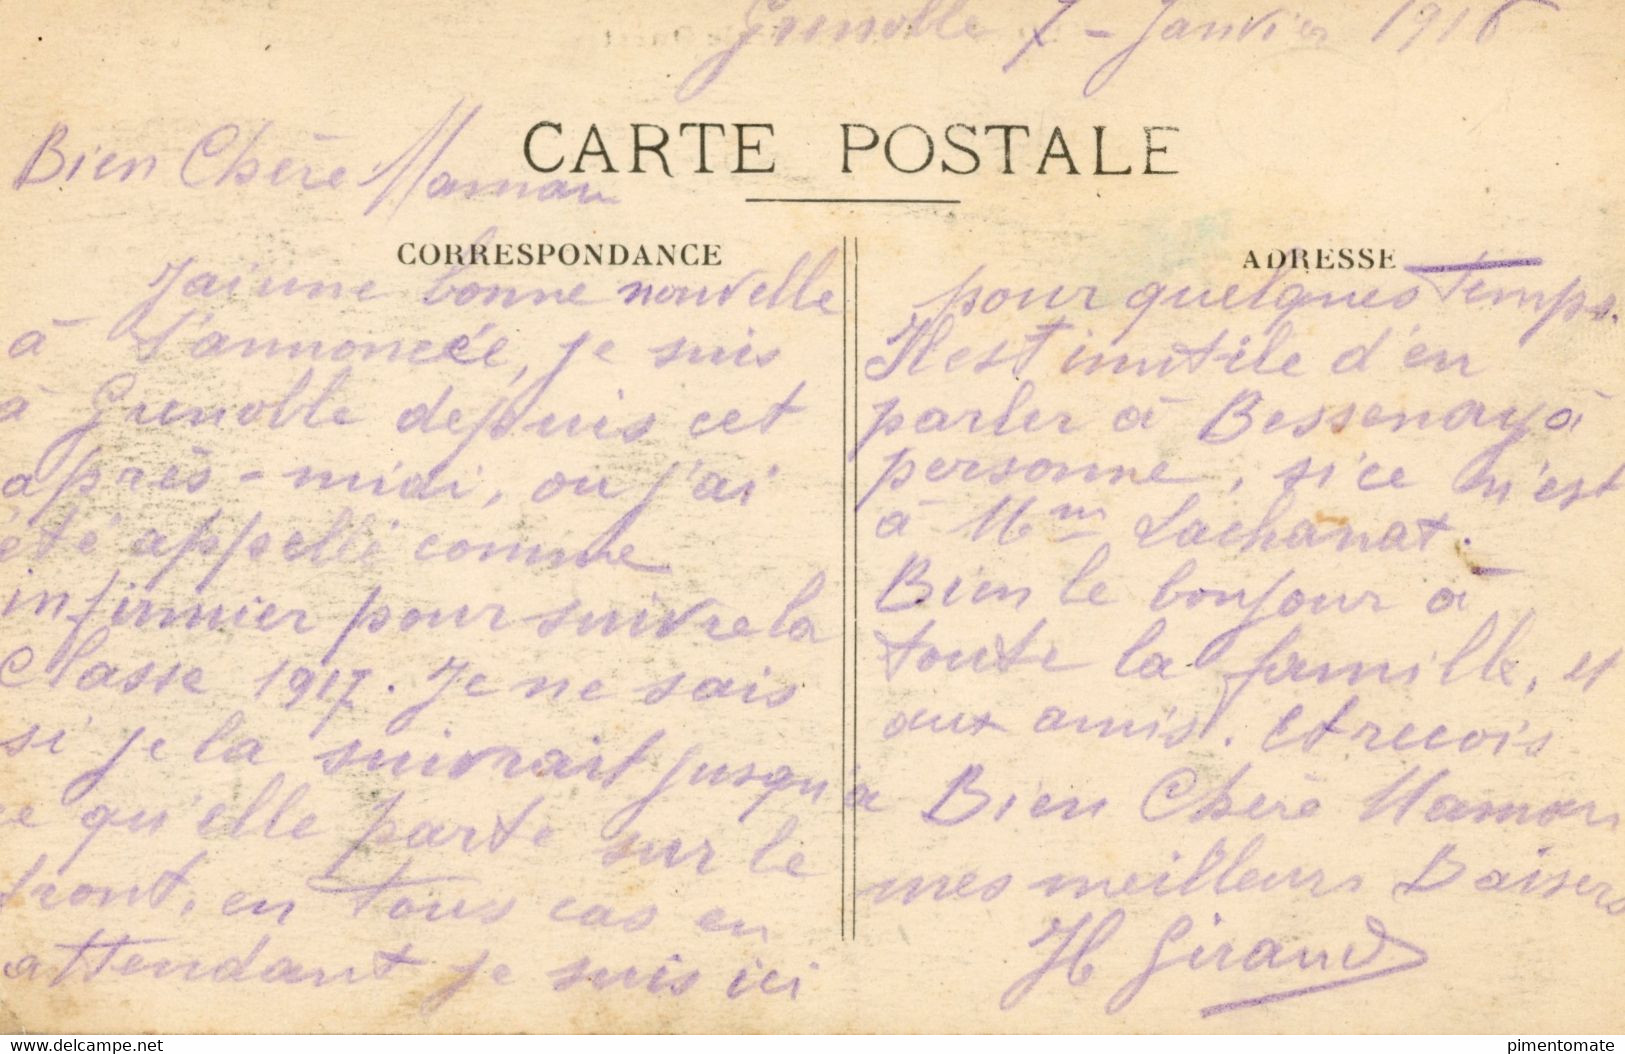 Grenoble 7 - Janvier 1916
CARTE POSTALE
Bien Chère Maman
CORRESPONDANCE
J'ai une bonne nouvelle
à t'annoncée, je suis
à Grenoble depuis cet
après-midi, ou j'ai
été appellé comme
infirmier pour suivre la
Classe 1917. Je ne sais
si je la suivrait jusqu'à
ce qu'elle parte sur le
front, en tous cas en
attendant je suis ici
ADRESSE
pour quelques temps.
Il est inutile d'en
parler à Bessenay à
personne, si ce n'est
à Mme Lachanat.
Bien le bonjour à
toute la famille, et
aux amis. Et reçois
Bien Chère Maman
mes meilleurs Baisers
H Giraud
www.delcampe.net
pimentomate